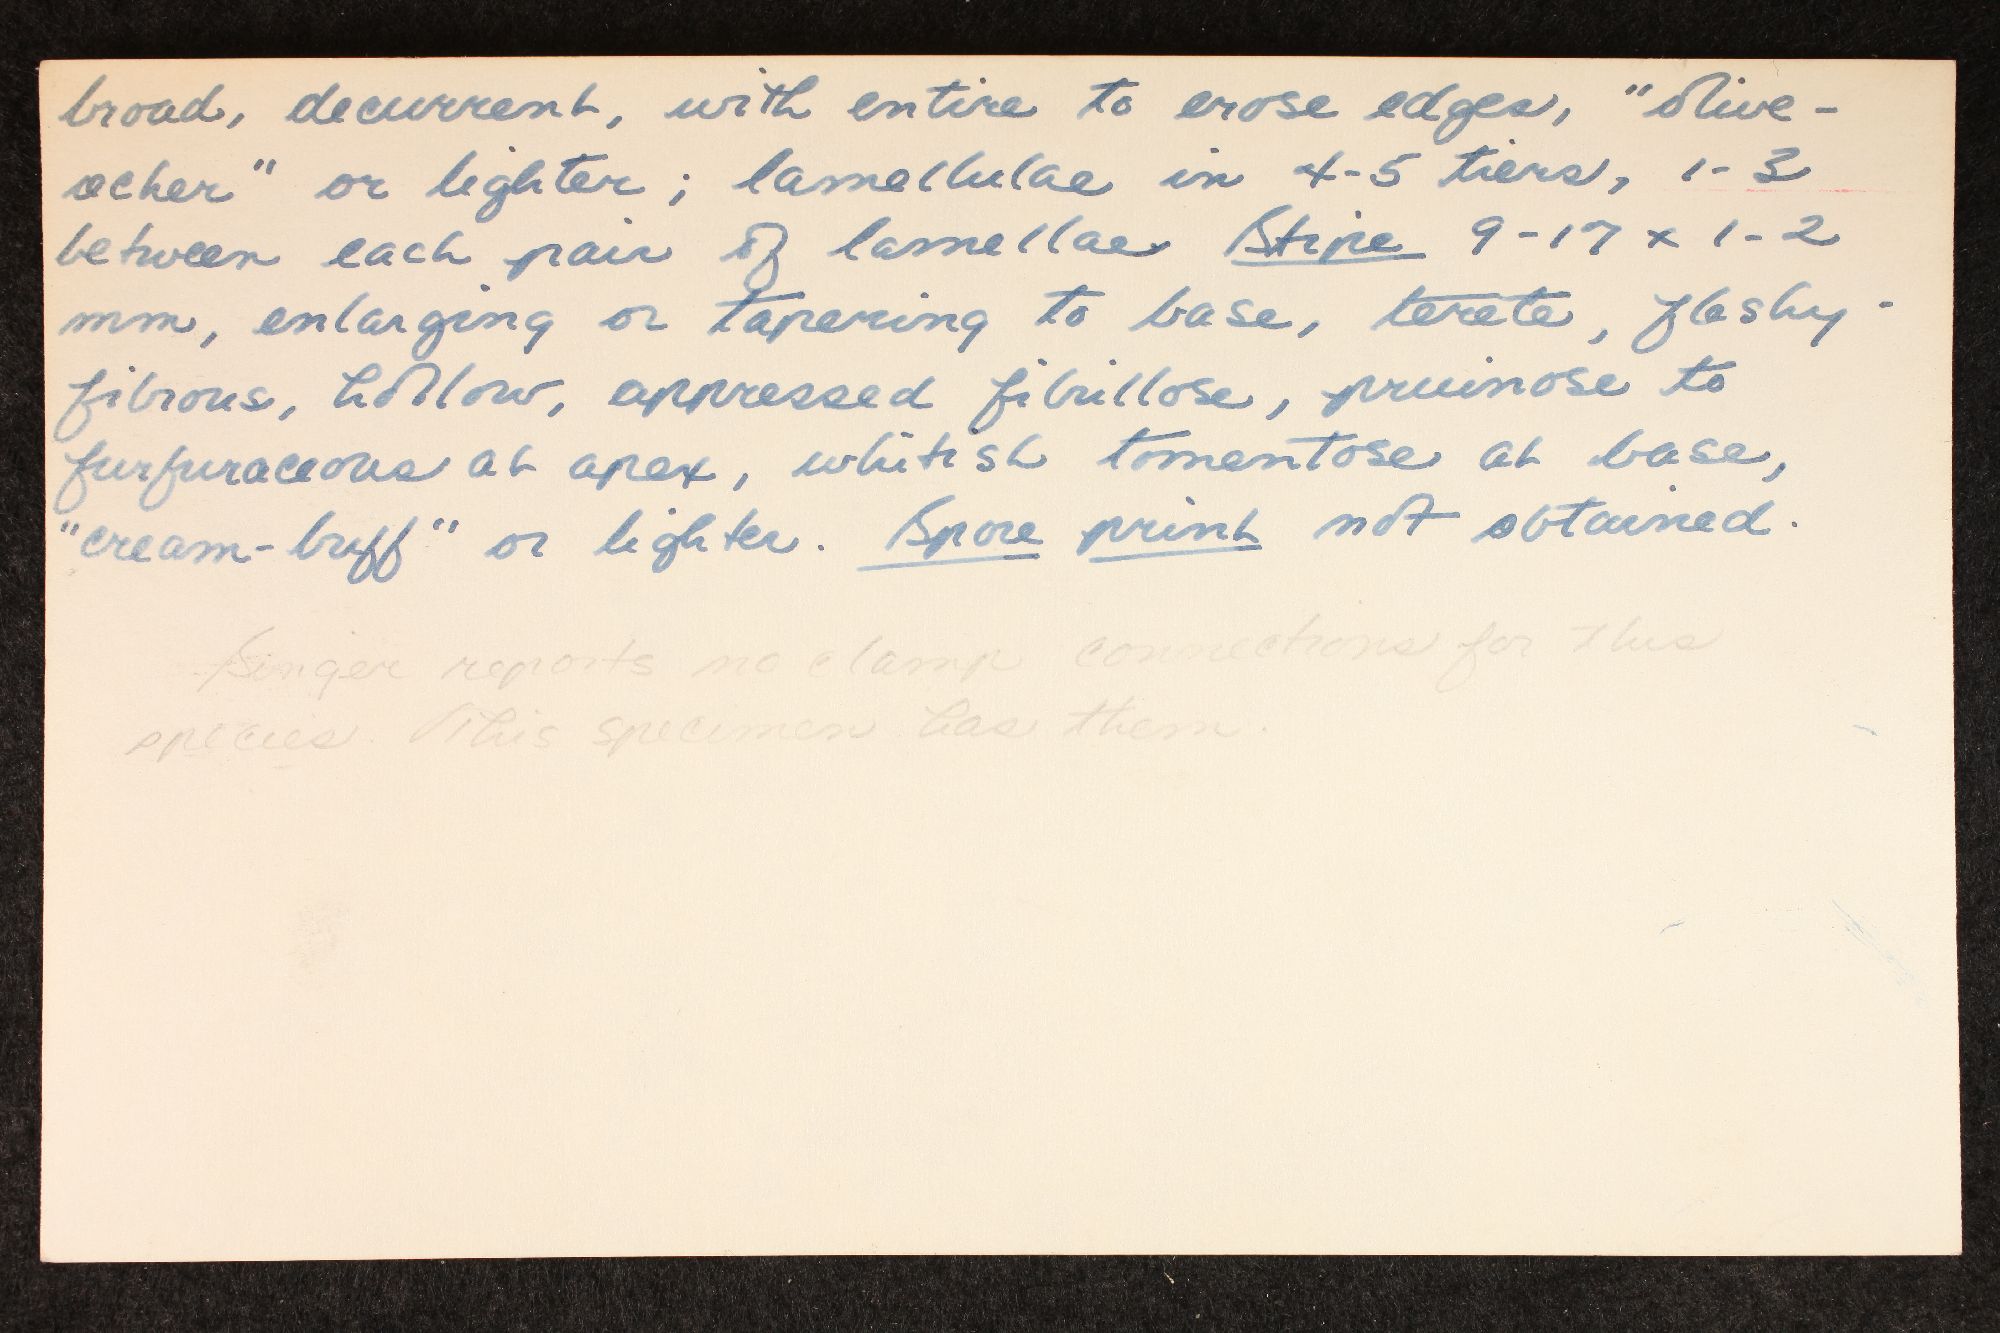 broad, decurrent, with entire to erose edges, "olive-
ocher" or lighter; lamellulae in 4-5 tiers, 1-3
between each pair of lamellae Stipe 9-17 x 1-2
mm, enlarging or tapering to base, terete, fleshy-
fibrous, hollow, appressed fibrillose, pruinose to
furfuraceous at apex, whitish tomentose at base,
"cream-buff" or lighter. Spore print not obtained.
Singer reports no clamp connections for this
species. This specimen has them.